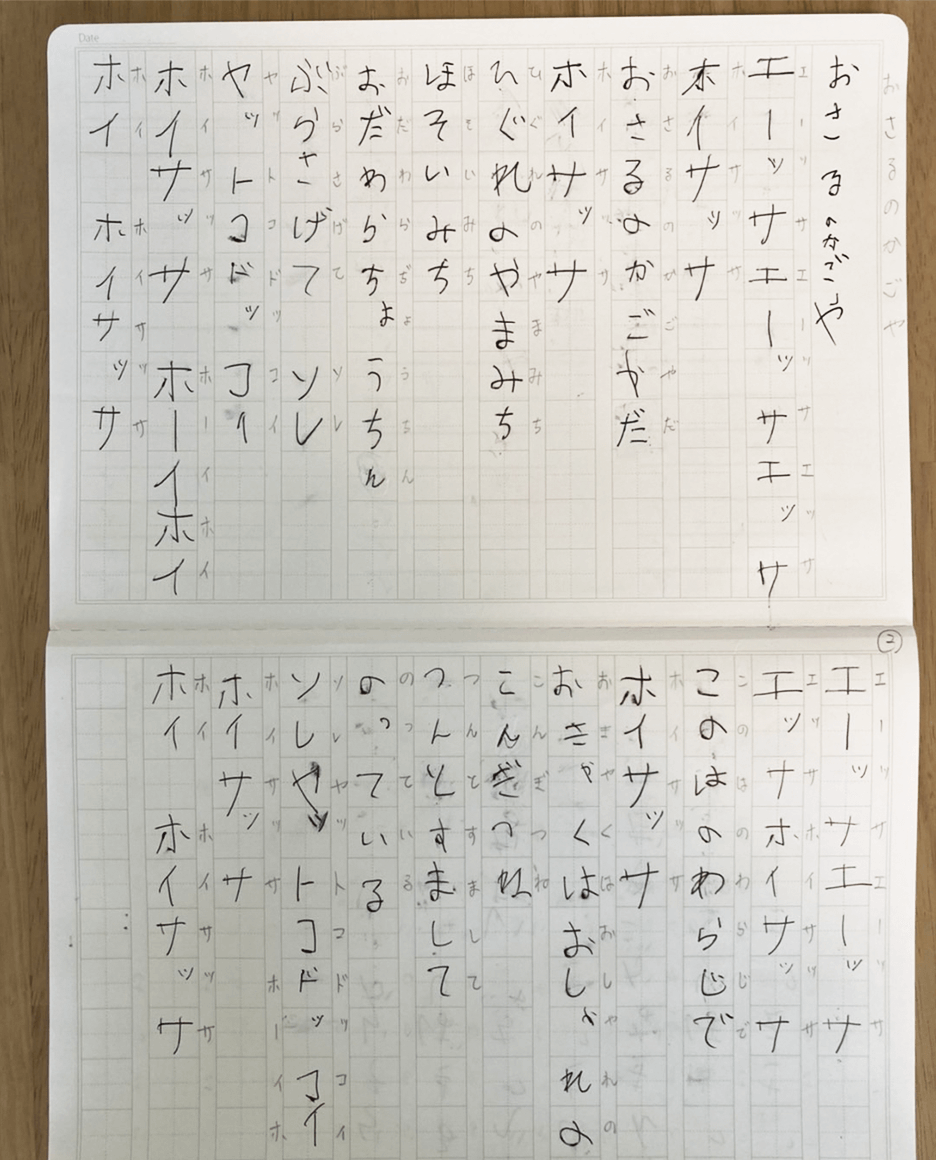 Date
おさるのかごや
おさるのかごや
エーッサエーッサエッサ
ホイサッサ
おさるのかごやだ
ホイサッサ
ひぐれのやまみち
ほそいみち
おだわらちょうちん
ぶらさげて ソレ
ヤットコドッコイ
ホイサッサ ホーイホイ
ホイ ホイサッサ
②
エーッサエーッサ
エッサホイサッサ
このはのわらじで
ホイサッサ
おきゃくはおしゃれの
こんぎつね
つんとすまして
のっている
ソレヤットコドッコイ
ホイサッサ
ホーイホイ
ホイ ホイサッサ